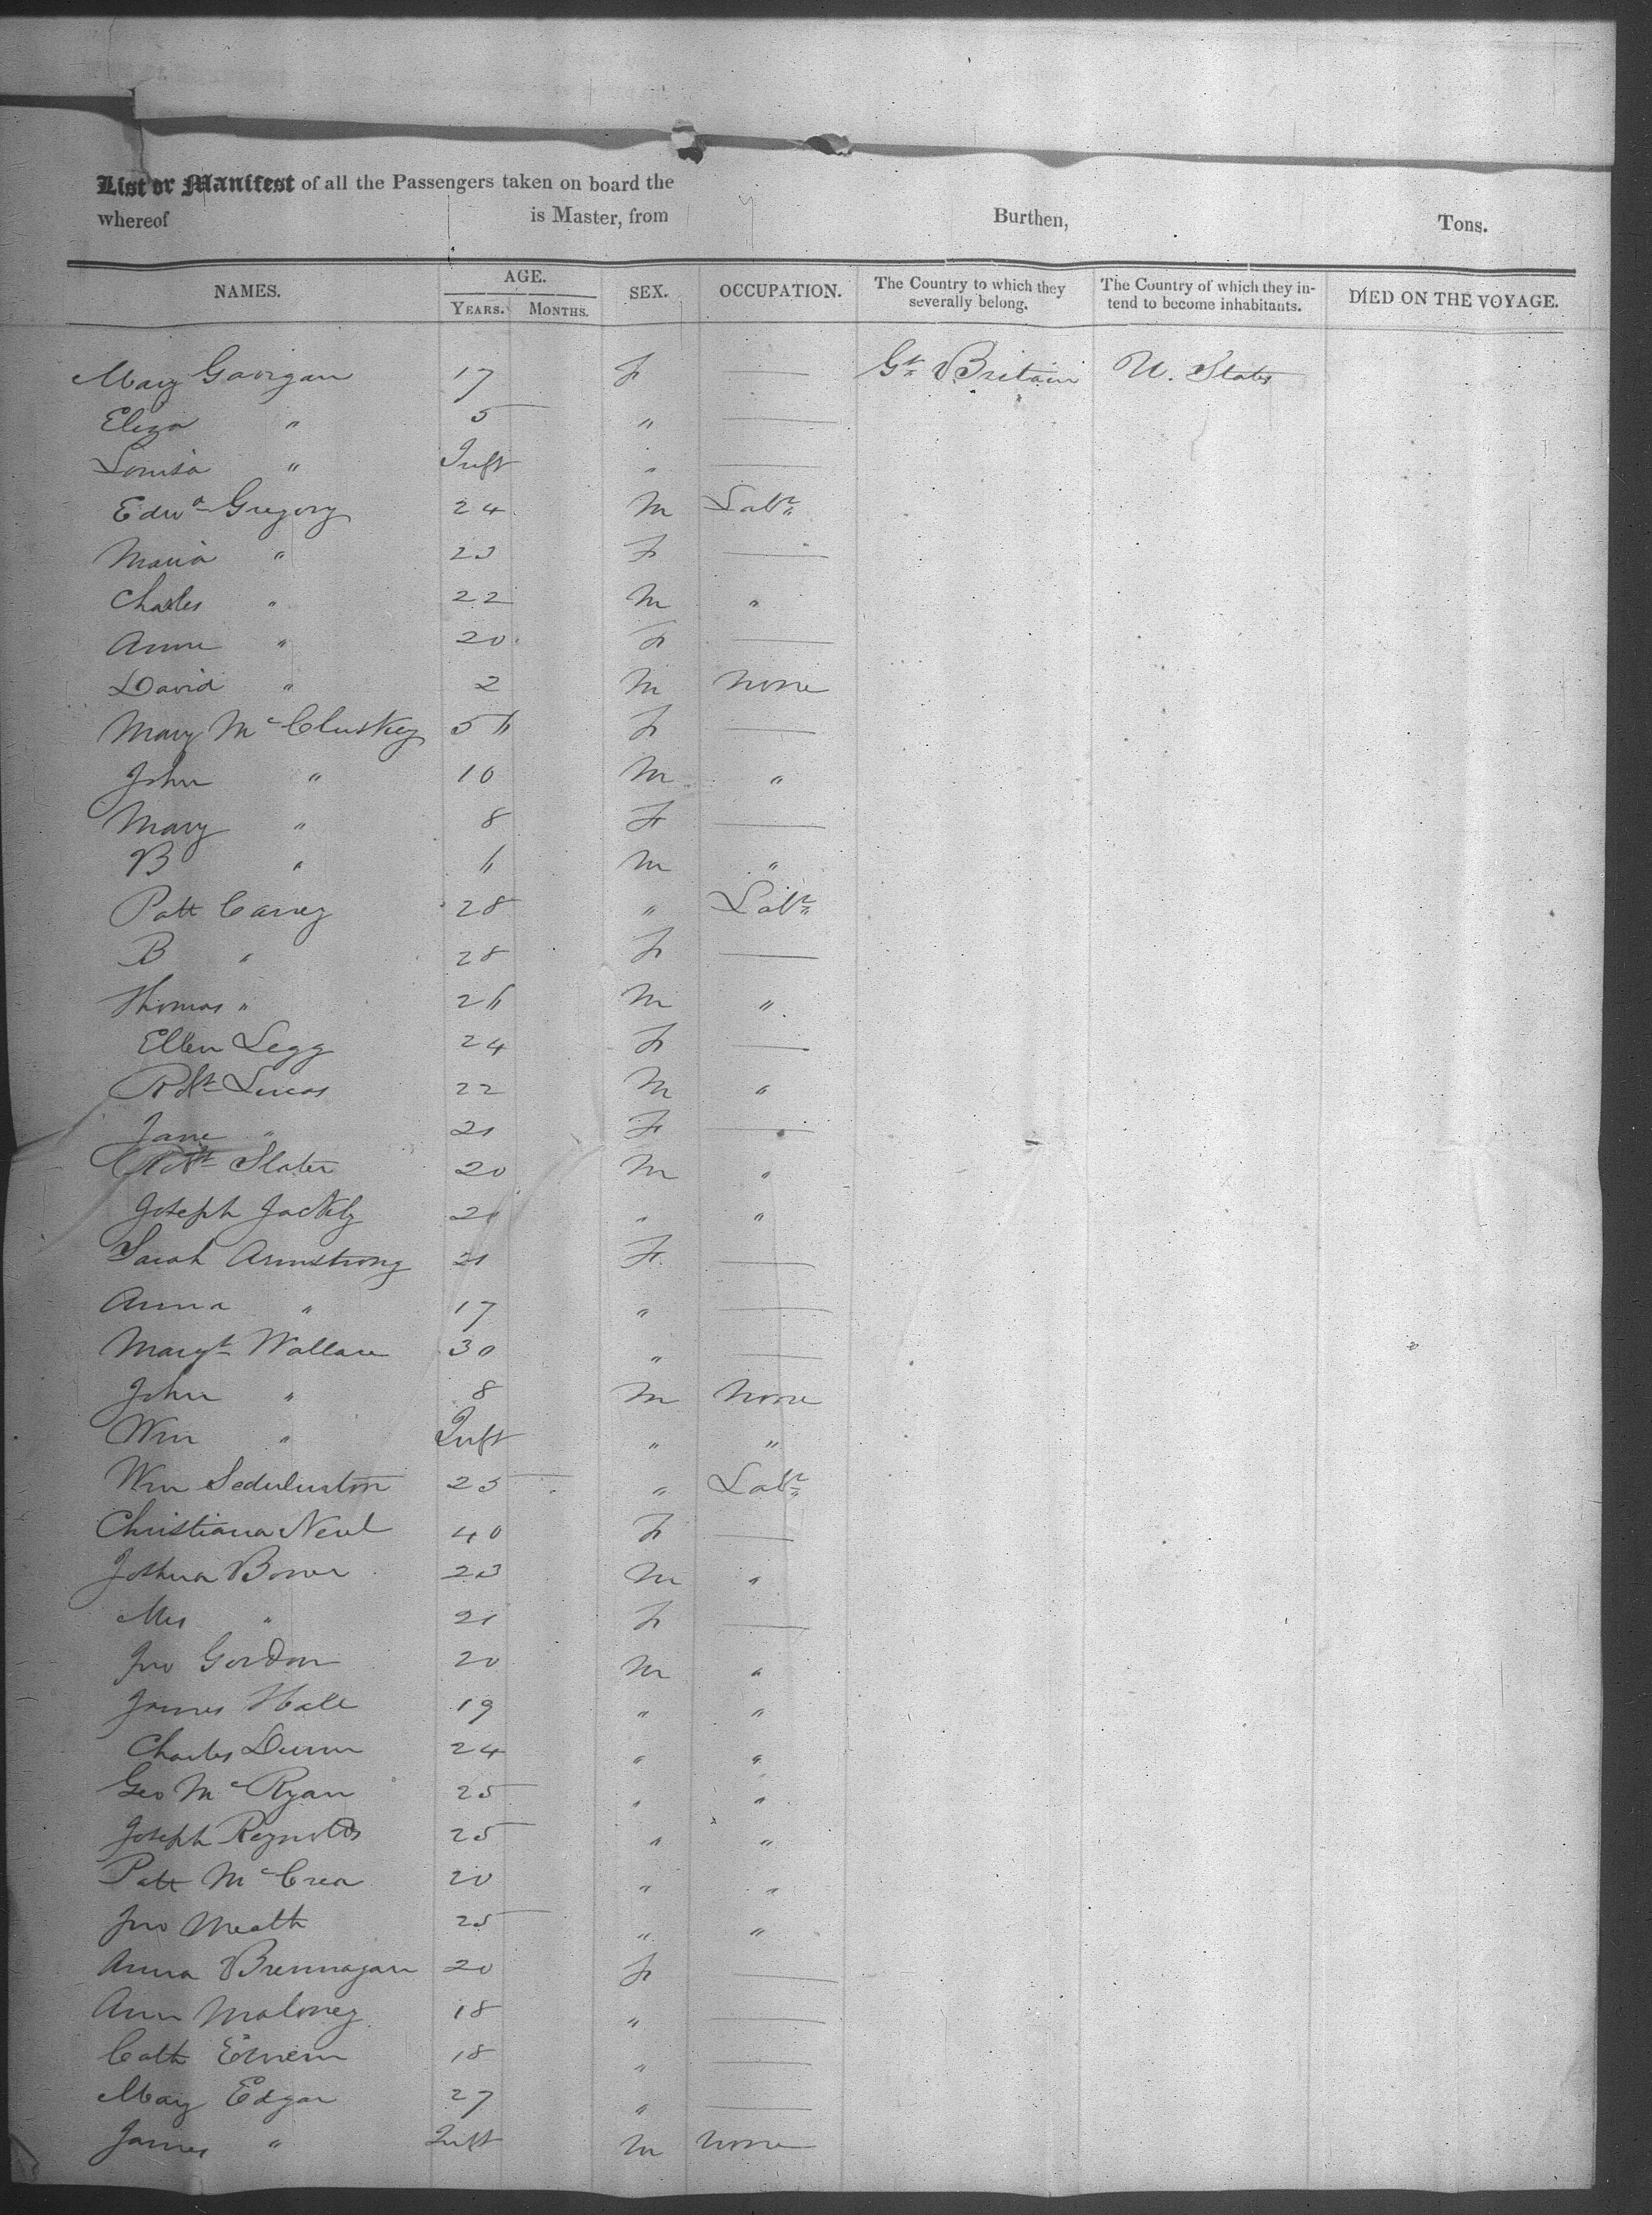 List or Manifest of all the Passengers taken on board the
whereof is Master, from Burthen, Tons.
NAMES. AGE. YEARS. MONTHS. SEX. OCCUPATION. The Country to which they severally belong. The Country of which they intend to become inhabitants. DIED ON THE VOYAGE.
Mary Gavigan 17 F — Gt Britain U. States
Eliza " 5 " —
Louisa " Inft " —
Edwd Gregory 24 M Labr
Maria " 23 F —
Charles " 22 M "
Anne " 20 F —
David " 2 M None
Mary McCluskey 56 F —
John " 10 M "
Mary " 8 F —
B " 6 M "
Patt Carney 28 " Labr
B " 28 F —
Thomas " 26 M "
Ellen Legg 24 F —
Robt Lucas 22 M "
Jane " 21 F —
Robt Slater 20 M "
Joseph 21 " "
Sarah Armstrong 21 F —
Anna " 17 " —
Margt Wallace 30 " —
John " 8 M None
Wm " Inft " "
Wm 25 " Labr
Christiana 40 F —
Joshua Bower 23 M "
Mrs " 21 F —
Jno Gordon 20 M "
James Hall 19 " "
Charles Dunn 24 " "
Geo McRyan 25 " "
Joseph Reynolds 25 " "
Patt McCrea 20 " "
Jno Meath 25 " "
Anna Brennagan 20 F —
Ann Maloney 18 " —
Cath 18 " —
Mary Edgar 27 " —
James " Inft M None